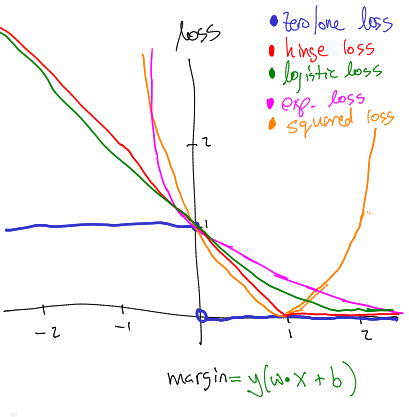 loss
zero/one loss
hinge loss
logistic loss
exp. loss
squared loss
2
1
-2
-1
1
2
margin = y(w·x + b)